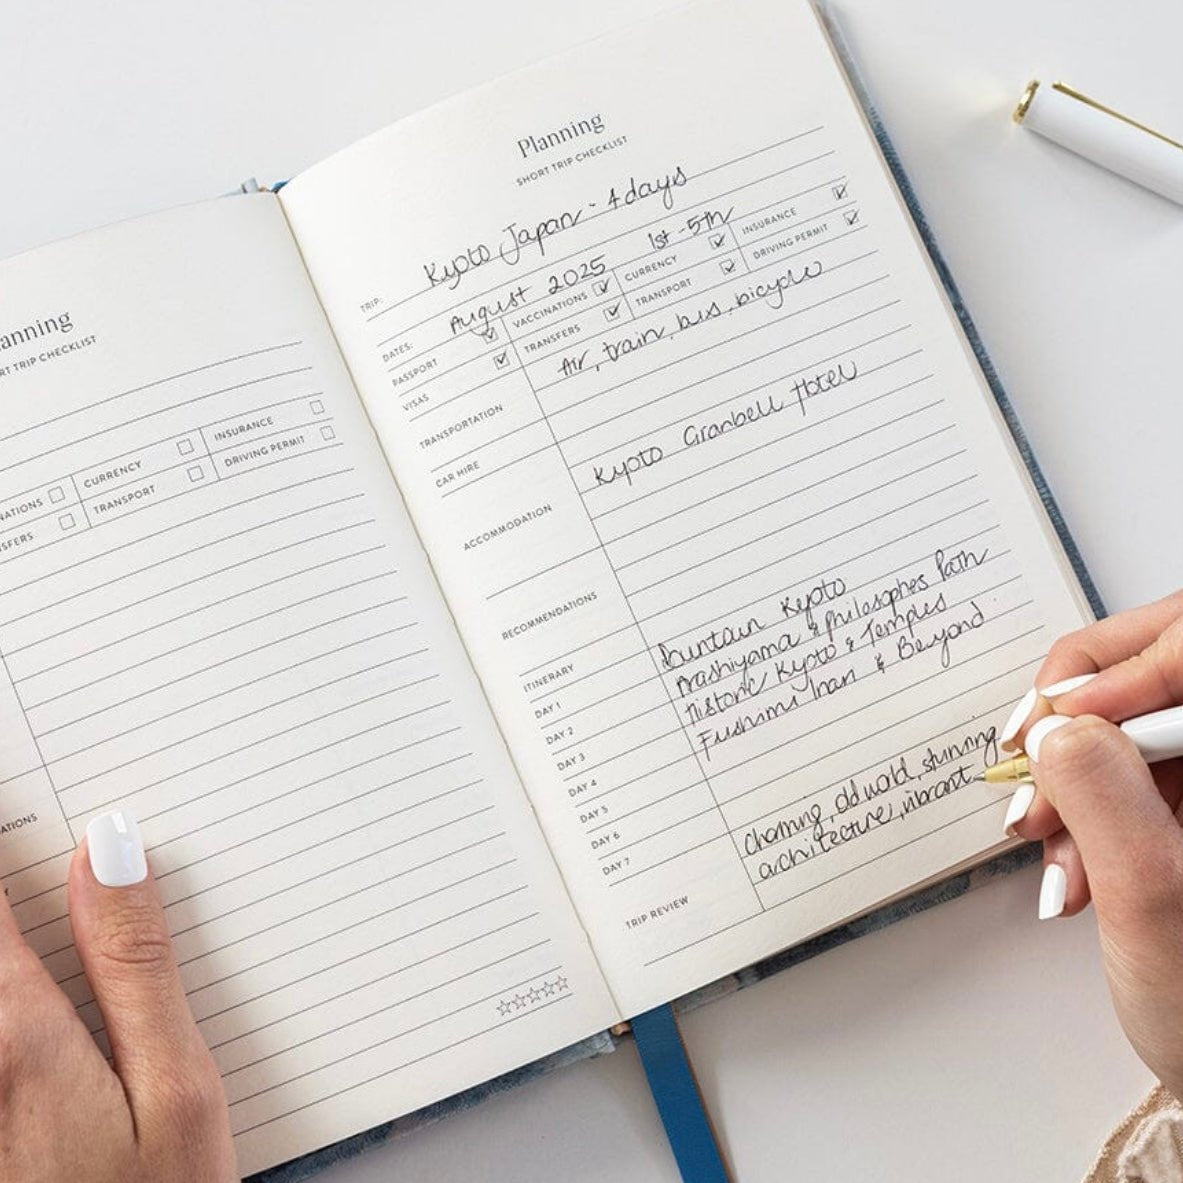 anning
RT TRIP CHECKLIST
NATIONS CURRENCY INSURANCE
NSFERS TRANSPORT DRIVING PERMIT
ATIONS
Y
Planning
SHORT TRIP CHECKLIST
TRIP: Kyoto Japan - 4 days
DATES: August 2025 1st - 5th
PASSPORT VACCINATIONS CURRENCY INSURANCE
VISAS TRANSFERS TRANSPORT DRIVING PERMIT
TRANSPORTATION Air, train, bus, bicycle
CAR HIRE
ACCOMMODATION Kyoto Granbell Hotel
RECOMMENDATIONS
ITINERARY
DAY 1 Downtown Kyoto
DAY 2 Arashiyama & Philosophes Path
DAY 3 Historic Kyoto & Temples
DAY 4 Fushimi Inari & Beyond
DAY 5
DAY 6
DAY 7
TRIP REVIEW charming, old world, stunning
architecture, vibrant